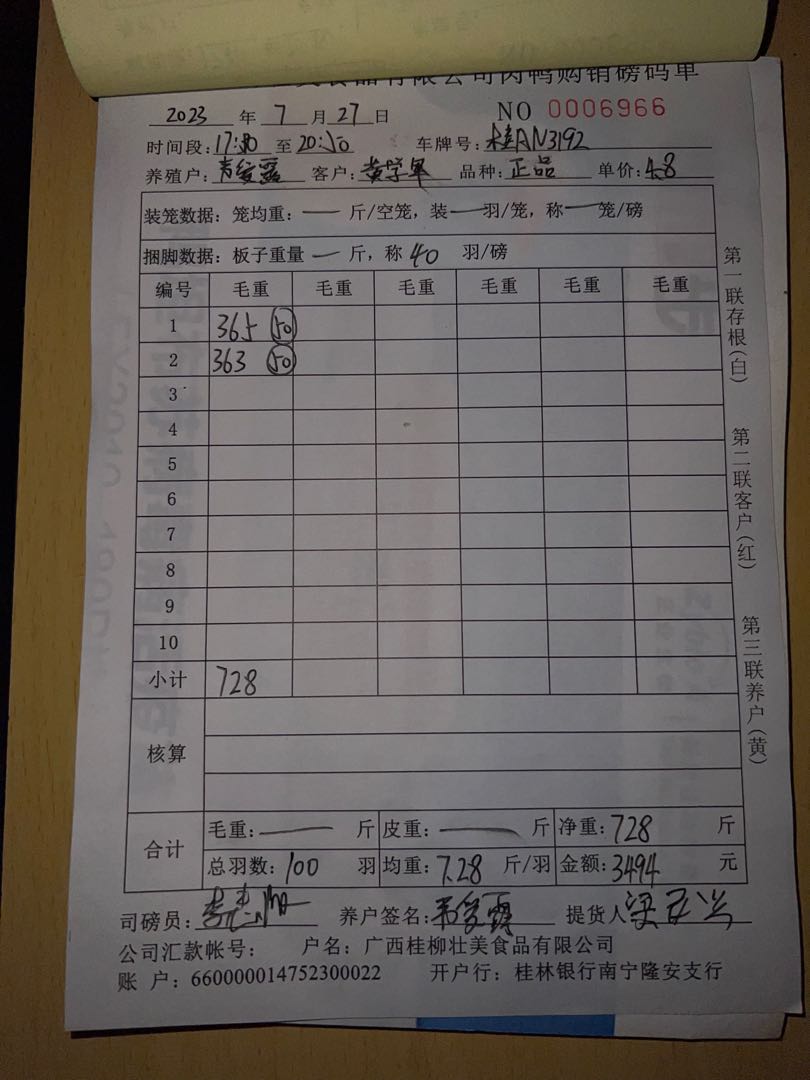 美食品有限公司肉鸭购销磅码单
2023 年 7 月 27 日 NO 0006966
时间段: 17:30 至 20:50 车牌号: 桂AN3192
养殖户: 客户: 黄学军 品种: 正品 单价: 4.8
装笼数据: 笼均重: — 斤/空笼, 装 — 羽/笼, 称 — 笼/磅
捆脚数据: 板子重量 — 斤, 称 40 羽/磅
编号 毛重 毛重 毛重 毛重 毛重 毛重
1 365 50
2 363 50
3
4
5
6
7
8
9
10
小计 728
核算
合计 毛重: — 斤 皮重: — 斤 净重: 728 斤
总羽数: 100 羽 均重: 7.28 斤/羽 金额: 3494 元
司磅员: 养户签名: 提货人
公司汇款帐号: 户名: 广西桂柳壮美食品有限公司
账 户: 660000014752300022 开户行: 桂林银行南宁隆安支行
第一联存根(白)
第二联客户(红)
第三联养户(黄)